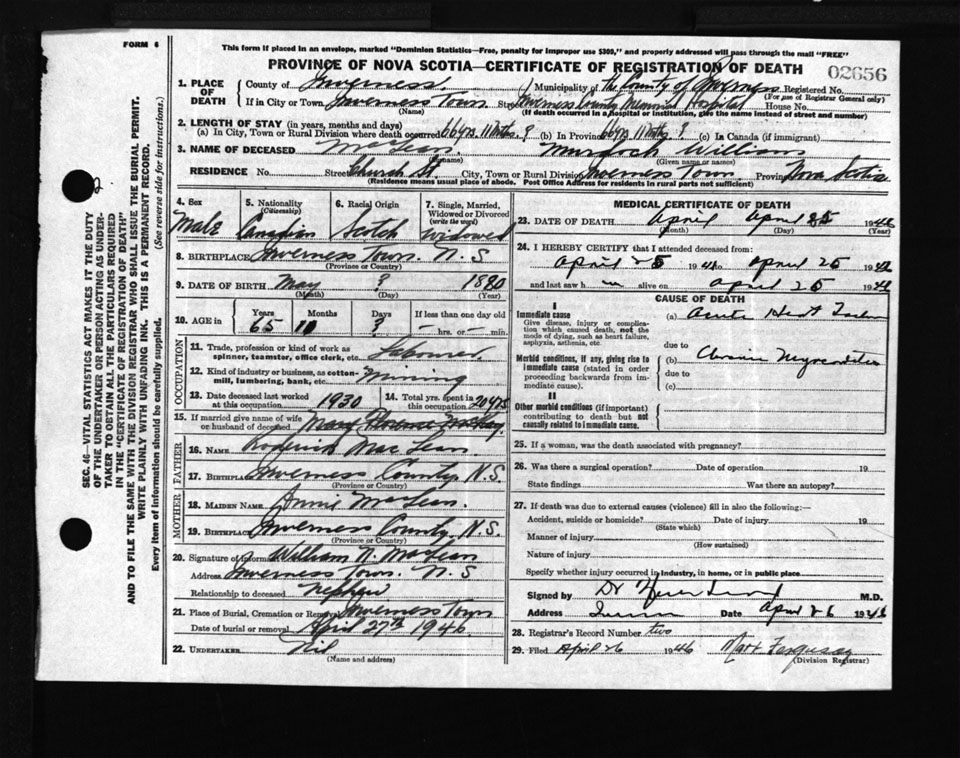 FORM 6
This form if placed in an envelope, marked "Dominion Statistics—Free, penalty for improper use $300," and properly addressed will pass through the mail "FREE"
PROVINCE OF NOVA SCOTIA—CERTIFICATE OF REGISTRATION OF DEATH
02656
1. PLACE OF DEATH
County of Inverness
Municipality of the County of Inverness
Registered No.
(For use of Registrar General only)
If in City or Town Inverness Town Street Inverness County Memorial Hospital House No.
(If death occurred in a hospital or institution, give the name instead of street and number)
2. LENGTH OF STAY (in years, months and days)
(a) In City, Town or Rural Division where death occurred 66yrs. 11mths. ? (b) In Province 66yrs. 11mths. ? (c) In Canada (if immigrant)
3. NAME OF DECEASED MacLean Murdoch William
(Surname) (Given name or names)
RESIDENCE No. Street Church St. City, Town or Rural Division Inverness Town Province Nova Scotia
(Residence means usual place of abode. Post Office Address for residents in rural parts not sufficient)
4. Sex Male
5. Nationality (Citizenship) Canadian
6. Racial Origin Scotch
7. Single, Married, Widowed or Divorced (write the word) widowed
8. BIRTHPLACE Inverness Town. N.S
(Province or Country)
9. DATE OF BIRTH May ? 1880
(Month) (Day) (Year)
10. AGE in Years 65 Months 11 Days ? If less than one day old — hrs. or — min.
OCCUPATION
11. Trade, profession or kind of work as spinner, teamster, office clerk, etc. Labourer.
12. Kind of industry or business, as cotton-mill, lumbering, bank, etc. Mining
13. Date deceased last worked at this occupation 1930
14. Total yrs. spent in this occupation 20yrs
15. If married give name of wife or husband of deceased Mary Florence MacKay
FATHER
16. NAME Roderick MacLean
17. BIRTHPLACE Inverness County, N.S.
(Province or Country)
MOTHER
18. MAIDEN NAME Annie MacLean
19. BIRTHPLACE Inverness County, N.S.
(Province or Country)
20. Signature of Informant William N. MacLean
Address Inverness Town. N.S
Relationship to deceased nephew
21. Place of Burial, Cremation or Removal Inverness Town
Date of burial or removal April 27th 1946
22. UNDERTAKER Nil
(Name and address)
MEDICAL CERTIFICATE OF DEATH
23. DATE OF DEATH April April 25 1946
(Month) (Day) (Year)
24. I HEREBY CERTIFY that I attended deceased from:
April 25 1946 to April 25 1946
and last saw h im alive on April 25 1946
CAUSE OF DEATH
I
Immediate cause
Give disease, injury or complication which caused death, not the mode of dying, such as heart failure, asphyxia, asthenia, etc.
(a) Acute Heart
due to
Morbid conditions, if any, giving rise to immediate cause (stated in order proceeding backwards from immediate cause).
(b) Chronic
due to
(c)
II
Other morbid conditions (if important) contributing to death but not causally related to immediate cause.
25. If a woman, was the death associated with pregnancy?
26. Was there a surgical operation? Date of operation 19
State findings Was there an autopsy?
27. If death was due to external causes (violence) fill in also the following:—
Accident, suicide or homicide? Date of injury 19
(State which)
Manner of injury
(How sustained)
Nature of injury
Specify whether injury occurred in industry, in home, or in public place
Signed by Dr M.D.
Address Date April 26 1946
28. Registrar's Record Number two
29. Filed April 26 1946 Ferguson
(Division Registrar)
SEC. 46—VITAL STATISTICS ACT MAKES IT THE DUTY
OF THE UNDERTAKER OR PERSON ACTING AS UNDER-
TAKER TO OBTAIN ALL THE PARTICULARS REQUIRED
IN THE "CERTIFICATE OF REGISTRATION OF DEATH"
AND TO FILE THE SAME WITH THE DIVISION REGISTRAR WHO SHALL ISSUE THE BURIAL PERMIT.
WRITE PLAINLY WITH UNFADING INK. THIS IS A PERMANENT RECORD.
Every item of information should be carefully supplied. (See reverse side for instructions.)